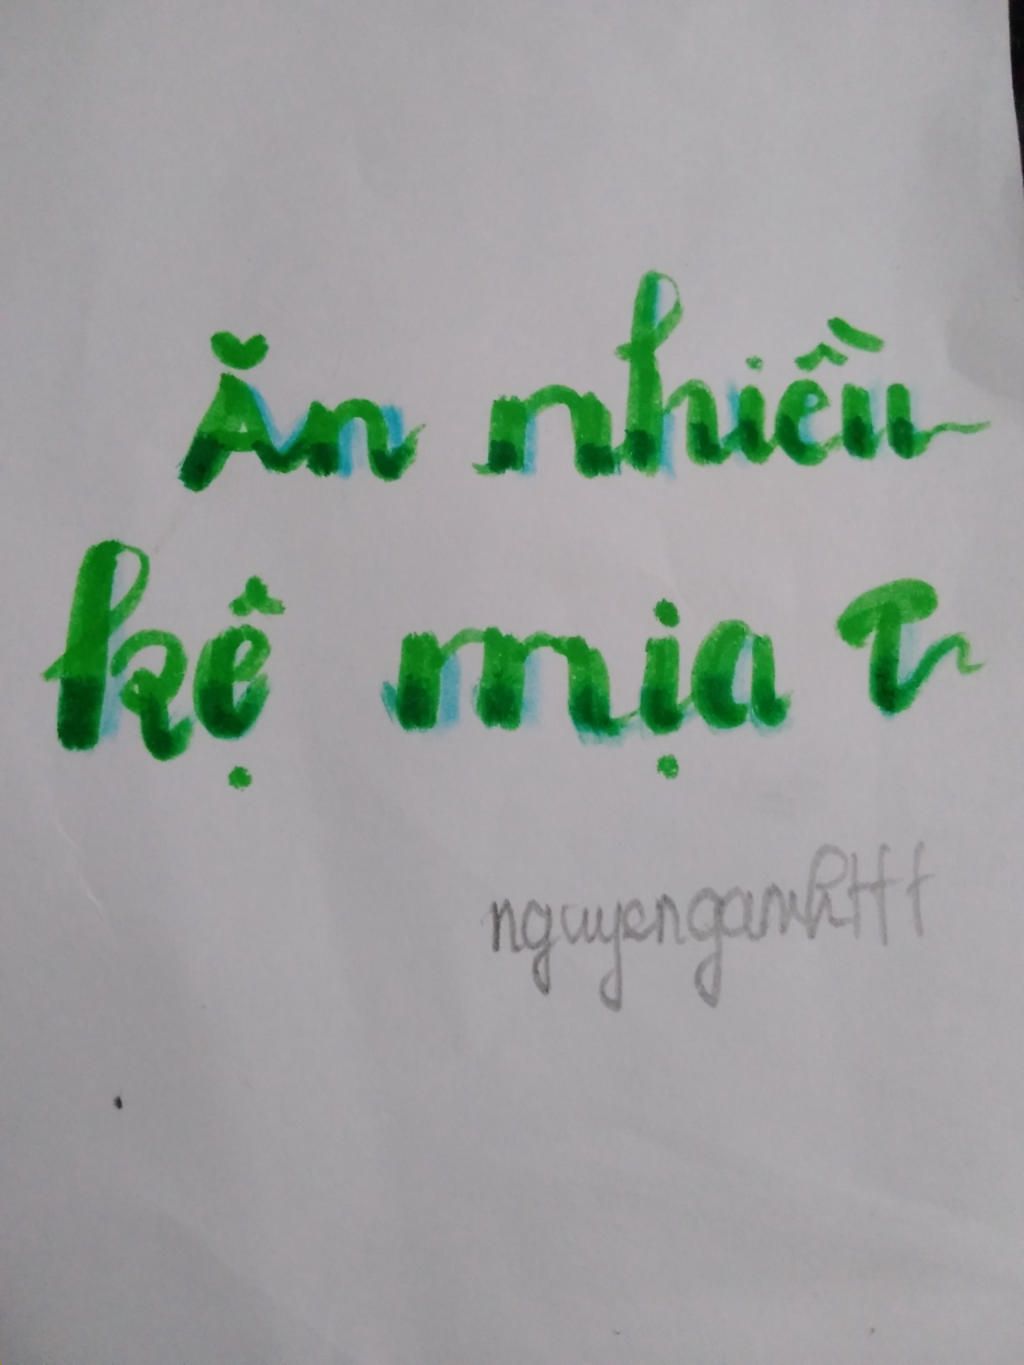 Ăn nhiều
kệ mịa T
nguyenganhHt